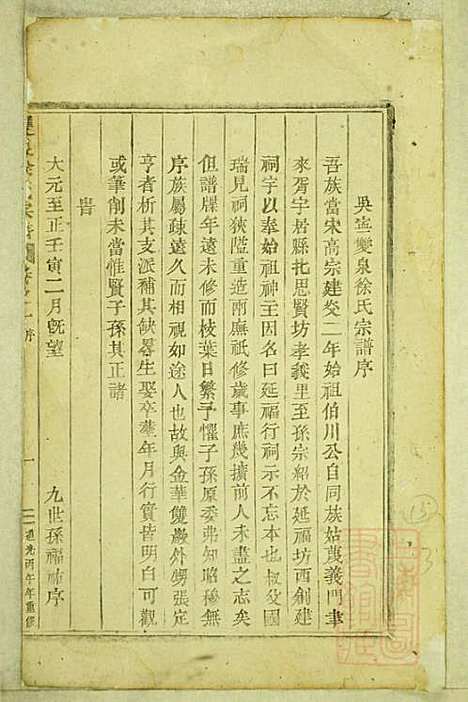 吳寧雙泉徐氏宗譜序
吾族當宋高宗建炎二年始祖伯川公自同族姑蔑義門聿
來胥宇居縣北思賢坊孝義里至孫宗紹於延福坊西創建
祠宇以奉始祖神主因名曰延福行祠示不忘本也叔父國
瑞見祠狹隘重造兩廡祇修歲事庶幾擴前人未盡之志矣
但譜牒年遠未修而枝葉日繁予懼子孫原委弗知昭穆無
序族屬疎遠久而相視如途人也故與金華雙巖外甥張定
亨者析其支派補其缺畧生娶卒塟年月行實皆明白可觀
或筆削未當惟賢子孫其正諸
旹
大元至正壬寅二月旣望
九世孫福 序
序
一
道光丙午年重修